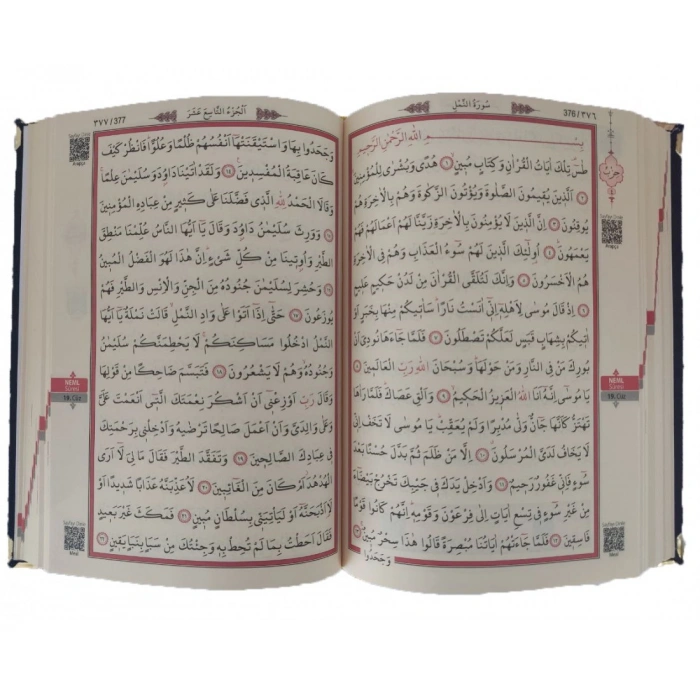 سُورَةُ النَّمْلِ
376/٣٧٦
بِسْمِ اللّٰهِ الرَّحْمٰنِ الرَّحِيمِ
طٰسٓ تِلْكَ اٰيَاتُ الْقُرْاٰنِ وَكِتَابٍ مُبِينٍ ١ هُدًى وَبُشْرٰى لِلْمُؤْمِنِينَ
٢ اَلَّذِينَ يُقِيمُونَ الصَّلٰوةَ وَيُؤْتُونَ الزَّكٰوةَ وَهُمْ بِالْاٰخِرَةِ هُمْ
يُوقِنُونَ ٣ اِنَّ الَّذِينَ لَا يُؤْمِنُونَ بِالْاٰخِرَةِ زَيَّنَّا لَهُمْ اَعْمَالَهُمْ فَهُمْ
يَعْمَهُونَ ٤ اُولٰٓئِكَ الَّذِينَ لَهُمْ سُٓوءُ الْعَذَابِ وَهُمْ فِي الْاٰخِرَةِ
هُمُ الْاَخْسَرُونَ ٥ وَاِنَّكَ لَتُلَقَّى الْقُرْاٰنَ مِنْ لَدُنْ حَكِيمٍ عَلِيمٍ
٦ اِذْ قَالَ مُوسٰى لِاَهْلِهٓ اِنّٓي اٰنَسْتُ نَارًا سَاٰتِيكُمْ مِنْهَا بِخَبَرٍ اَوْ
اٰتِيكُمْ بِشِهَابٍ قَبَسٍ لَعَلَّكُمْ تَصْطَلُونَ ٧ فَلَمَّا جَٓاءَهَا نُودِيَ اَنْ
بُورِكَ مَنْ فِي النَّارِ وَمَنْ حَوْلَهَا وَسُبْحَانَ اللّٰهِ رَبِّ الْعَالَمِينَ
٨ يَا مُوسٰٓى اِنَّهُٓ اَنَا اللّٰهُ الْعَزِيزُ الْحَكِيمُ ٩ وَاَلْقِ عَصَاكَ فَلَمَّا رَاٰهَا
تَهْتَزُّ كَاَنَّهَا جَٓانٌّ وَلّٰى مُدْبِرًا وَلَمْ يُعَقِّبْ يَا مُوسٰى لَا تَخَفْ اِنّٓي
لَا يَخَافُ لَدَيَّ الْمُرْسَلُونَ ١٠ اِلَّا مَنْ ظَلَمَ ثُمَّ بَدَّلَ حُسْنًا بَعْدَ
سُٓوءٍ فَاِنّٓي غَفُورٌ رَحِيمٌ ١١ وَاَدْخِلْ يَدَكَ فِي جَيْبِكَ تَخْرُجْ بَيْضَٓاءَ
مِنْ غَيْرِ سُٓوءٍ فِي تِسْعِ اٰيَاتٍ اِلٰى فِرْعَوْنَ وَقَوْمِهٖ اِنَّهُمْ كَانُوا قَوْمًا
فَاسِقِينَ ١٢ فَلَمَّا جَٓاءَتْهُمْ اٰيَاتُنَا مُبْصِرَةً قَالُوا هٰذَا سِحْرٌ مُبِينٌ ١٣
وَجَحَدُوا
حزب
NEML
Sûresi
19. Cüz
اَلْجُزْءُ التَّاسِعَ عَشَرَ
٣٧٧/377
وَجَحَدُوا بِهَا وَاسْتَيْقَنَتْهَٓا اَنْفُسُهُمْ ظُلْمًا وَعُلُوًّا فَانْظُرْ كَيْفَ
كَانَ عَاقِبَةُ الْمُفْسِدِينَ ١٤ وَلَقَدْ اٰتَيْنَا دَاوُدَ وَسُلَيْمٰنَ عِلْمًا
وَقَالَا الْحَمْدُ لِلّٰهِ الَّذِي فَضَّلَنَا عَلٰى كَثِيرٍ مِنْ عِبَادِهِ الْمُؤْمِنِينَ
١٥ وَوَرِثَ سُلَيْمٰنُ دَاوُدَ وَقَالَ يَٓا اَيُّهَا النَّاسُ عُلِّمْنَا مَنْطِقَ
الطَّيْرِ وَاُوتِينَا مِنْ كُلِّ شَيْءٍ اِنَّ هٰذَا لَهُوَ الْفَضْلُ الْمُبِينُ
١٦ وَحُشِرَ لِسُلَيْمٰنَ جُنُودُهُ مِنَ الْجِنِّ وَالْاِنْسِ وَالطَّيْرِ فَهُمْ
يُوزَعُونَ ١٧ حَتّٰٓى اِذَٓا اَتَوْا عَلٰى وَادِ النَّمْلِ قَالَتْ نَمْلَةٌ يَٓا اَيُّهَا
النَّمْلُ ادْخُلُوا مَسَاكِنَكُمْ لَا يَحْطِمَنَّكُمْ سُلَيْمٰنُ
وَجُنُودُهُ وَهُمْ لَا يَشْعُرُونَ ١٨ فَتَبَسَّمَ ضَاحِكًا مِنْ قَوْلِهَا
وَقَالَ رَبِّ اَوْزِعْنٓي اَنْ اَشْكُرَ نِعْمَتَكَ الَّتٓي اَنْعَمْتَ عَلَيَّ
وَعَلٰى وَالِدَيَّ وَاَنْ اَعْمَلَ صَالِحًا تَرْضٰيهُ وَاَدْخِلْنِي بِرَحْمَتِكَ
فِي عِبَادِكَ الصَّالِحِينَ ١٩ وَتَفَقَّدَ الطَّيْرَ فَقَالَ مَا لِيَ لَٓا اَرَى
الْهُدْهُدَ اَمْ كَانَ مِنَ الْغَٓائِبِينَ ٢٠ لَاُعَذِّبَنَّهُ عَذَابًا شَدِيدًا اَوْ
لَاَاذْبَحَنَّهُٓ اَوْ لَيَأْتِيَنِّي بِسُلْطَانٍ مُبِينٍ ٢١ فَمَكَثَ غَيْرَ بَعِيدٍ
فَقَالَ اَحَطْتُ بِمَا لَمْ تُحِطْ بِهٖ وَجِئْتُكَ مِنْ سَبَاٍ بِنَبَاٍ يَقِينٍ ٢٢
NEML
Sûresi
19. Cüz